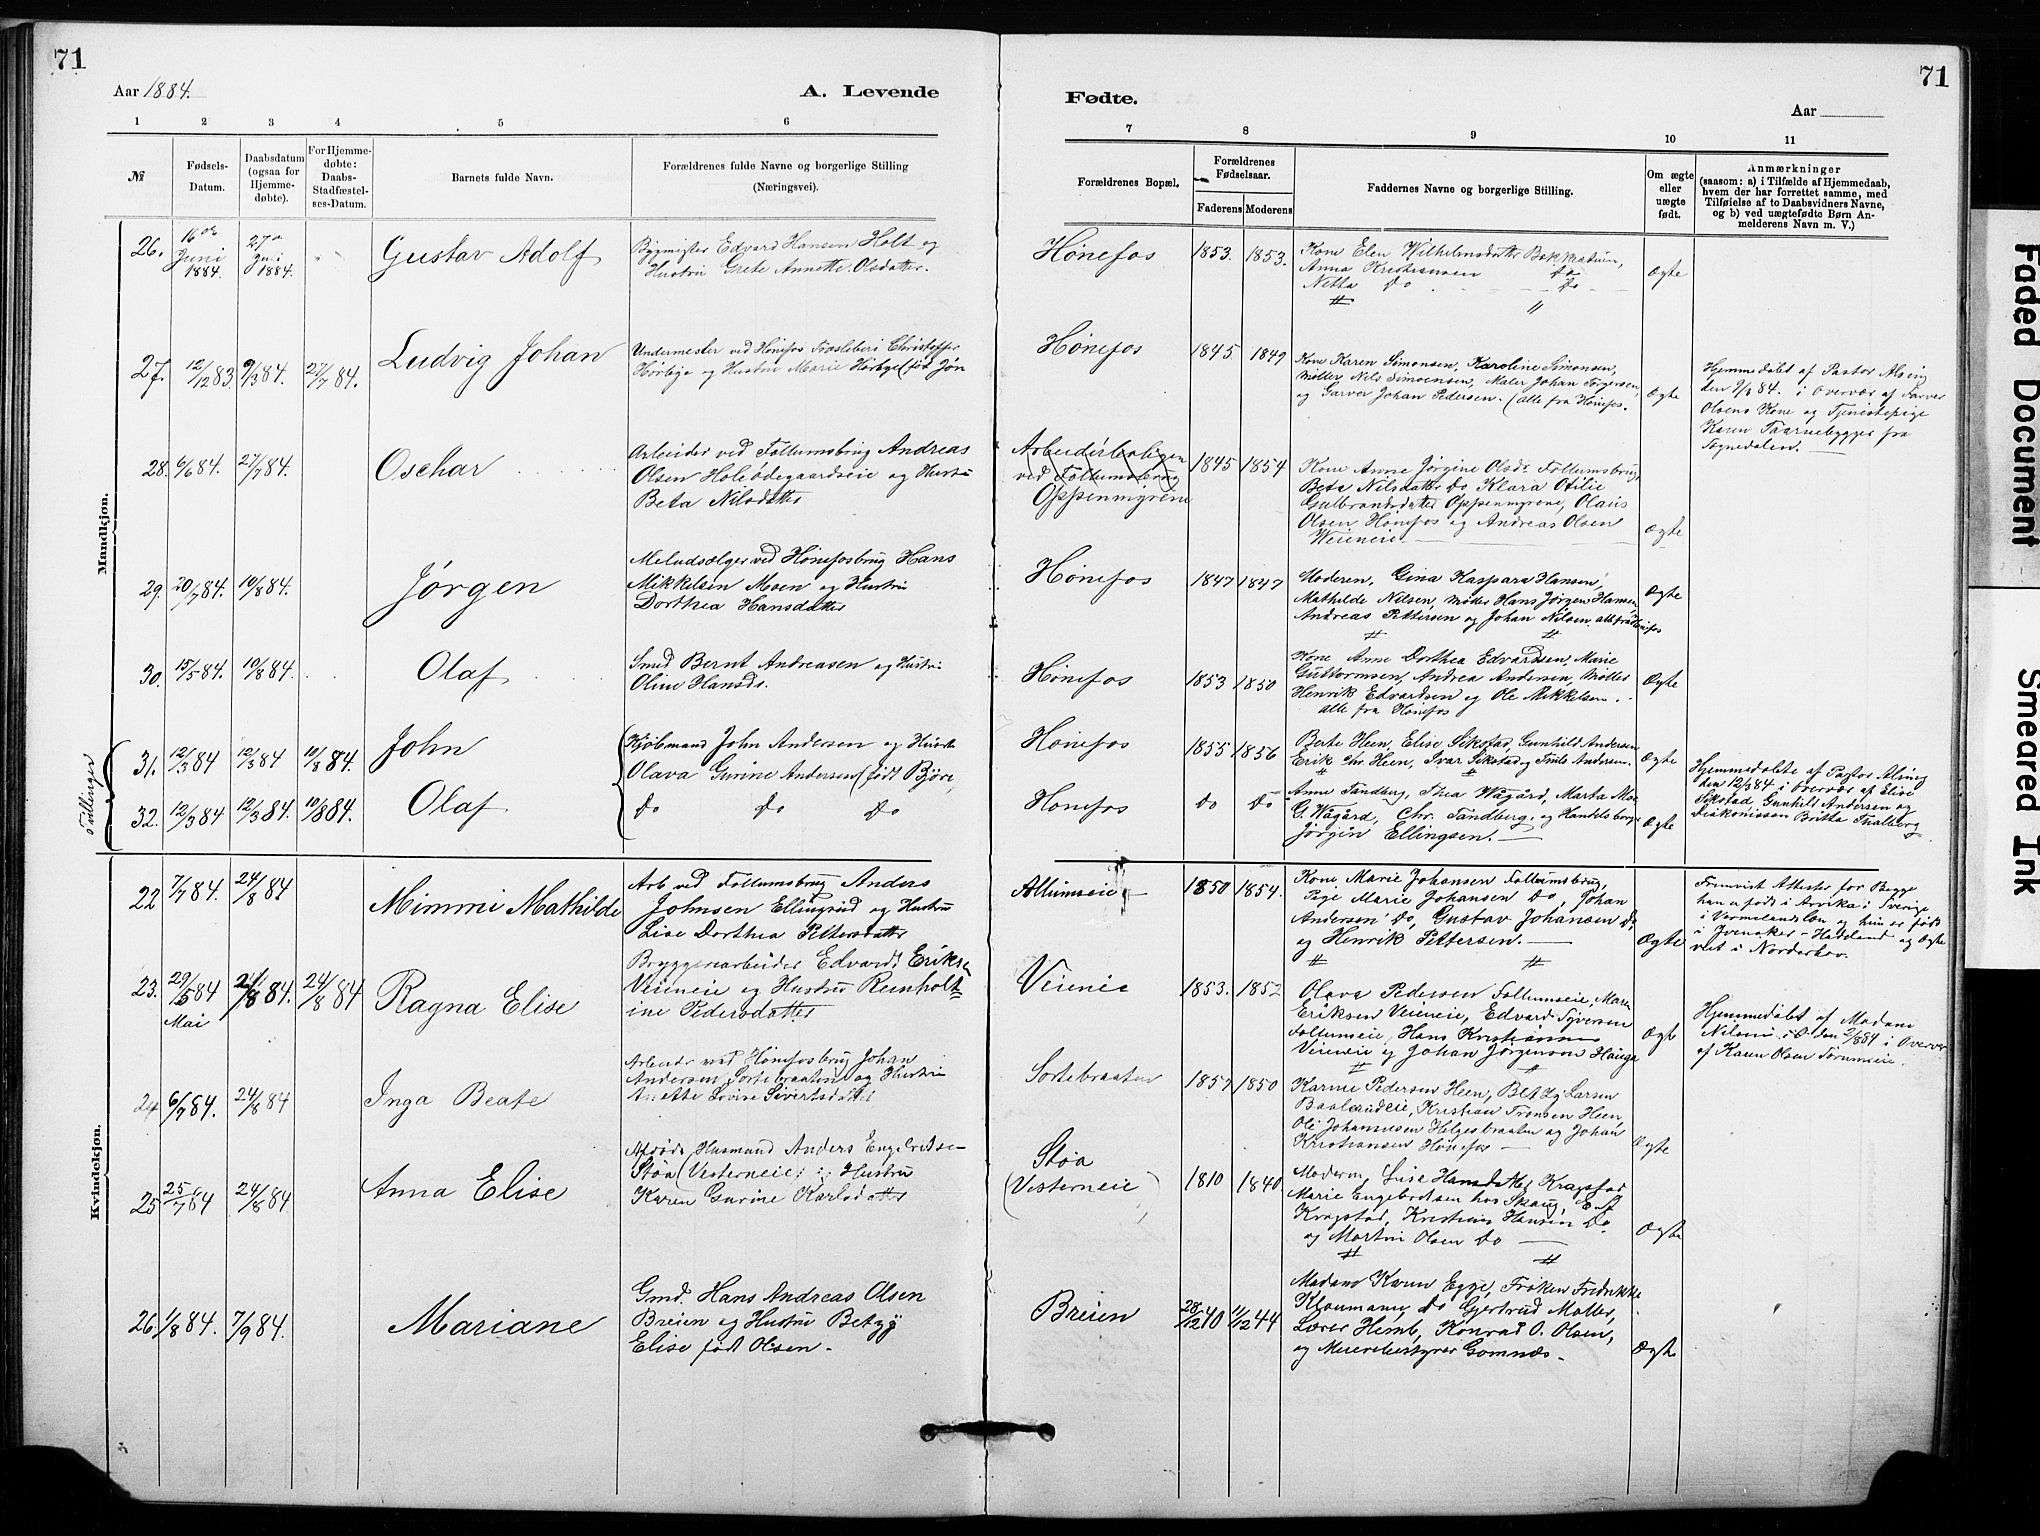 71
71
Aar 1884.
A. Levende
Fødte.
Aar
1 2 3 4 5 6 7 8 9 10 11
№
Fødsels-
Datum.
Daabsdatum
(ogsaa for
Hjemme-
døbte).
For Hjemme-
døbte:
Daabs-
Stadfæstel-
ses-Datum.
Barnets fulde Navn.
Forældrenes fulde Navne og borgerlige Stilling
(Næringsvei).
Forældrenes Bopæl.
Forældrenes
Fødselsaar.
Faderens Moderens
Faddernes Navne og borgerlige Stilling.
Om ægte
eller
uægte
født.
Anmærkninger
(saasom: a) i Tilfælde af Hjemmedaab,
hvem der har forrettet samme, med
Tilføielse af to Daabsvidners Navne,
og b) ved uægtefødte Børn An-
melderens Navn m. V.)
Mandkjøn.
26.
16de
Juni
1884.
27de
Juli
1884.
Gustav Adolf
Bygmester Edvard Hansen Holt og
Hustru Grete Annette Olsdatter.
Hønefos
1853. 1853.
Kone Elen Wilhelmsdatter
Anna Kristiansen Do
Netta Do Do
Ægte
27.
12/12 83.
9/3 84.
27/7 84.
Ludvig Johan
Undermester ved Hønefos Træsliberi Christoffer
og Hustru Marie
Hønefos
1845 1849
Kone Karen Simonsen, Karoline Simonsen,
Møller Nils Simonsen, Maler Johan Jørgensen,
og Garver Johan Pedersen. (alle fra Hønefos.
Ægte
Hjemmedøbt af Pastor Alsing
den 9/3 84. i Overvær af Farver
Olsens Kone og Tjenestepige
Karen Taarnebygget fra
Sognedalen.
28.
6/6 84.
27/7 84.
Oschar
Arbeider ved Follumsbrug Andreas
Olsen Holeødegaardseie og Hustru
Beta Nilsdatter
Arbeiderboligen
ved Follumsbrug
Oppenmyrene
1845 1854
Kone Anne Jørgine Olsdr Follumsbrug,
Beta Nilsdatter Do Klara Otilie
Gulbrandsdatter Oppenmyrene, Olaus
Olsen Hønefos og Andreas Olsen
Weieneie.
Ægte
29.
20/7 84.
10/8 84.
Jørgen
Meludsælger ved Hønefosbrug Hans
Mikkelsen Moen og Hustru
Dorthea Hansdatter
Hønefos
1847 1847
Moderen, Gina Kaspara Hansen,
Mathilde Nilsen, Møller Hans Jørgen Hansen,
Andreas Pettersen og Johan Nilsen alle fra Hønefos
Ægte
30.
15/5 84.
10/8 84.
Olaf
Smed Bernt Andreasen og Hustru
Oline Hansdr.
Hønefos
1853 1850
Kone Anne Dorthea Edvardsen, Marie
Guttormsen, Andrea Andersen, Møller
Henrik Edvardsen og Ole Mikkelsen.
alle fra Hønefos
Ægte
Tvillinger
31.
12/3 84
12/3 84
10/8 84.
John
Kjøbmand John Andersen og Hustru
Olava Gurine Andersen (født Bjøre,
Hønefos
1855 1856
Berte Heen, Elise Sikstad, Gunhild Andersen
Erik Chr Heen, Ivar Sikstad og Andersen.
Ægte
Hjemmedøbte af Pastor Alsing
den 12/3 84 i Overvær af Elise
Sikstad, Gunhild Andersen og
Diakonissen Britta Thalberg
32.
12/3 84
12/3 84.
10/8 84.
Olaf
Do Do Do
Hønefos
Do Do
Anne Tandberg, Thea Wågård, Marta Moe
G. Wågård, Chr. Tandberg, og Handelsborger
Jørgin Ellingsen.
Ægte
Kvindekjøn.
22
7/7 84.
24/8 84
Mimmi Mathilde
Arb ved Follumsbrug Anders
Johnsen Ellingsrud og Hustru
Lise Dorthea Pettersdatter
Follumseie
1850 1854.
Kone Marie Johansen Follumsbrug,
Pige Marie Johansen Do, Johan
Andersen Do, Gustav Johansen Do,
og Henrik Pettersen.
Ægte
Fremvist Attester for Begge
han er født i Arvika i Sverige
i Vermelandslæn og hun er født
i Jevnaker - Hadeland og Ægte
viet i Norderhov.
23.
29/5 84
Mai
24/8 84.
24/8 84
Ragna Elise
Bryggeriarbeider Edvard Eriksen
Veieneie og Hustru Reenholt
ine Pedersdatter
Veieneie
1853. 1852
Olava Pedersen Follumseie, Maren
Eriksen Veieneie, Edvard Syversen
Follumseie, Hans Kristiansen
Veieneie og Johan Jørgensen Hauga
Ægte
Hjemmedøbt af Madam
Nilsen i Overvær
af Karen Olsen
24
6/7 84.
24/8 84
Inga Beate
Arbeider ved Hønefosbrug Johan
Andersen Sortebraaten og Hustru
Anette Lovise Sivertsdatter
Sortebraaten
1857 1850
Karine Pedersen Heen, Betzy Larsen
Kristian Fransen Heen
Ole Johannesen Helgesbraaten og Johan
Kristiansen Hønefos
Ægte
25
25/7 84
24/8 84
Anna Elise
Afdøde Husmand Anders Engebretse-
Støa (Vesterneie) og Hustru
Karen Gurine Karlsdatter
Støa
(Vesterneie)
1810 1840
Moderen, Lise Hansdatter Kragstad
Marie Engebretsen hos Skaug, E. S
Kragstad, Kristian Hansen Do
og Martin Olsen Do
Ægte
26
1/8 84.
7/9 84.
Mariane
Gmd. Hans Andreas Olsen
Breien og Hustru Betzy
Elise født Olsen.
Breien
28/12 40 11/12 44
Madam Karen Egge, Frøken Fredrikke
Klaumann, Do Gjertrud Møller,
Lærer Hemb, Konrad O. Olsen,
og Meieribestyrer Gomnæs.
Ægte
Faded Document
Smeared Ink